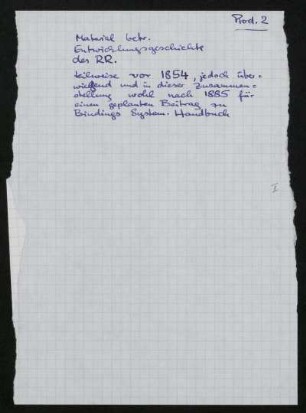 Prod. 2
Material betr.
Entwicklungsgeschichte
des RR.
teilweise vor 1854, jedoch über-
wiegend und in dieser Zusammen=
stellung wohl nach 1885 für
einen geplanten Beitrag zu
Bindings System. Handbuch
I